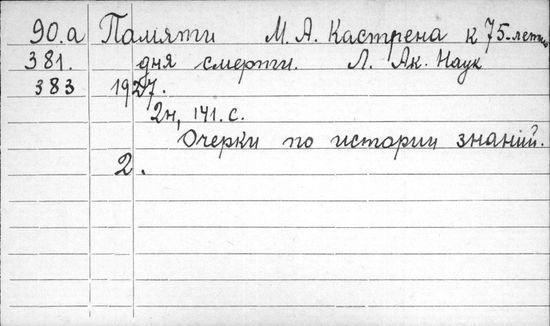 90.а Памяти М. А. Кастрена к 75-летию
381. дня смерти. Л. Ак. Наук
383 1927.
2н, 141. с.
Очерки по истории знаний.
2.